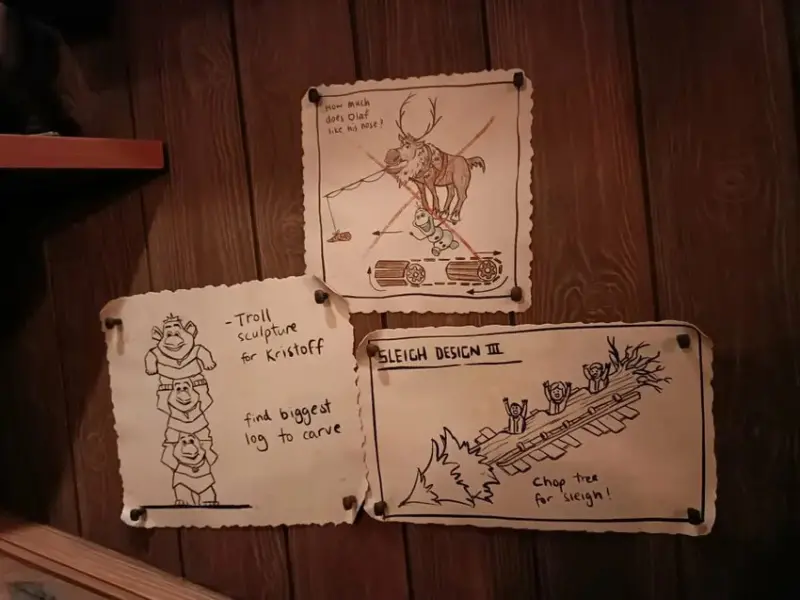 How much
does Olaf
like his nose?
- Troll
sculpture
for Kristoff
find biggest
log to carve
SLEIGH DESIGN III
Chop tree
for sleigh!